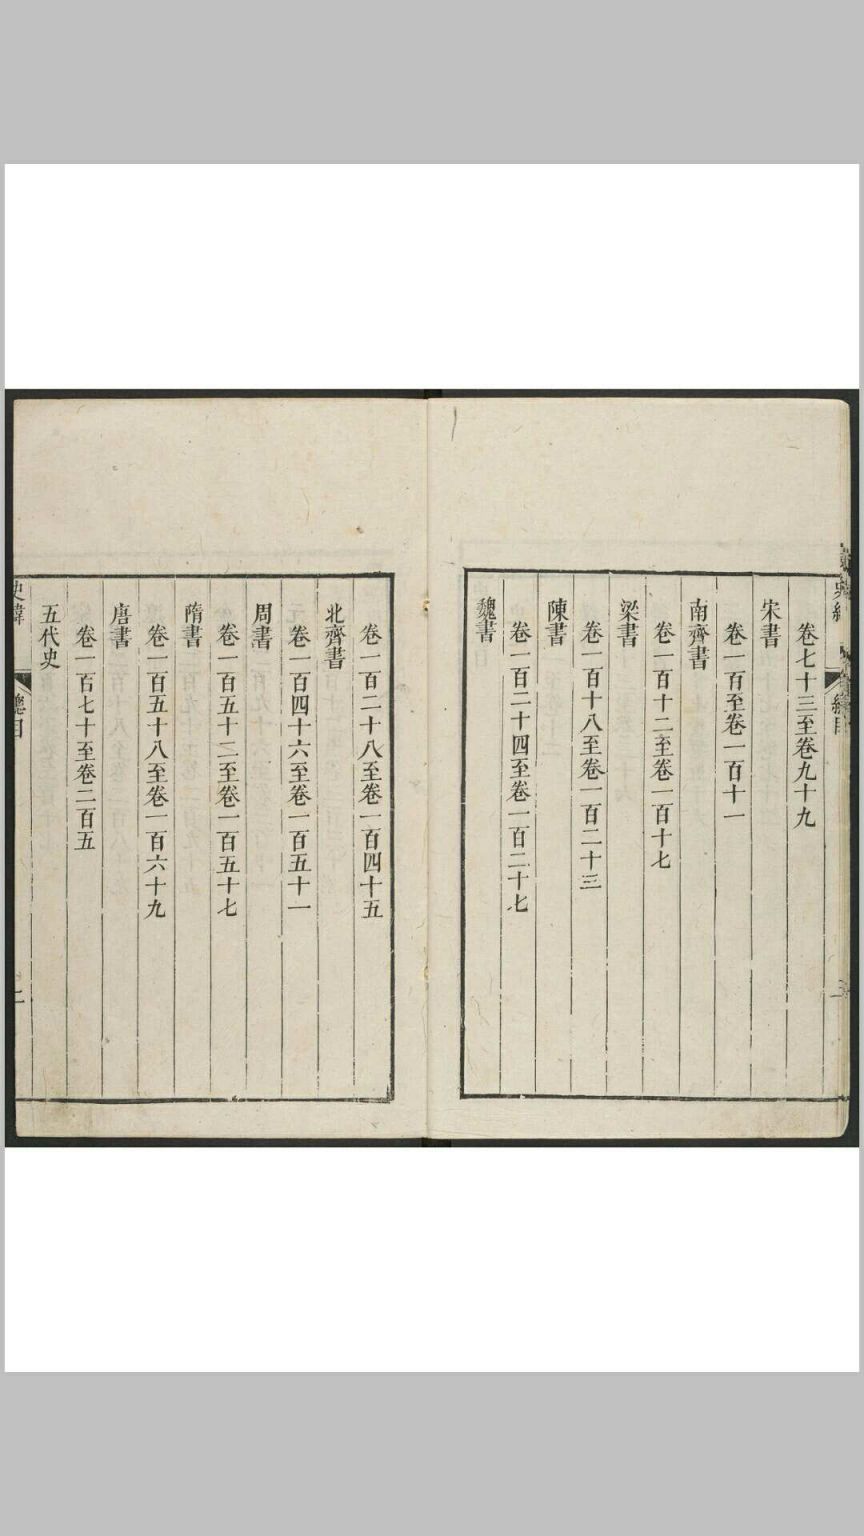 卷七十三至卷九十九
宋書
卷一百至卷一百十一
南齊書
卷一百十二至卷一百十七
梁書
卷一百十八至卷一百二十三
陳書
卷一百二十四至卷一百二十七
魏書
卷一百二十八至卷一百四十五
北齊書
卷一百四十六至卷一百五十一
周書
卷一百五十二至卷一百五十七
隋書
卷一百五十八至卷一百六十九
唐書
卷一百七十至卷二百五
五代史
史緯 總目